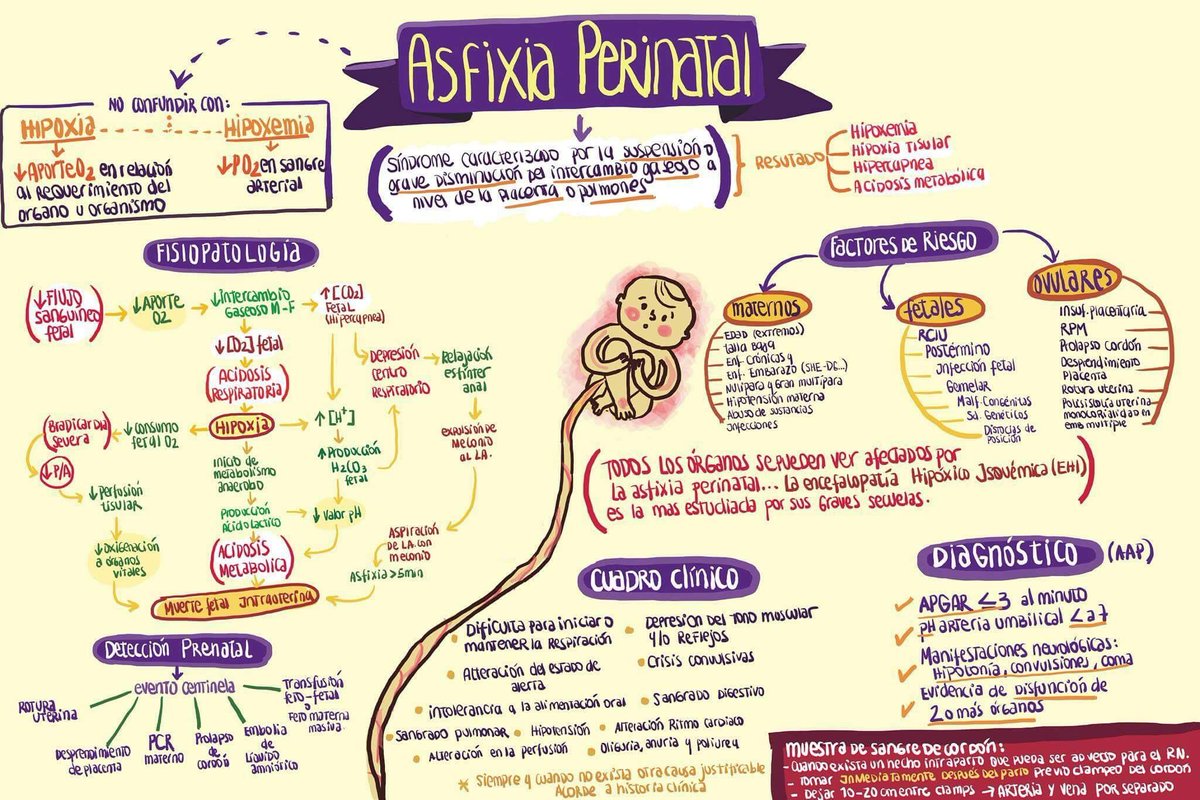 Asfixia Perinatal
NO CONFUNDIR CON:
HIPOXIA
↓APORTE O2 en relación
al requerimiento del
órgano u organismo
HIPOXEMIA
↓PO2 en sangre
arterial
Síndrome caracterizado por la suspensión o
grave disminución del intercambio gaseoso a
nivel de la placenta o pulmones
RESULTADO
Hipoxemia
Hipoxia tisular
Hipercapnea
Acidosis metabólica
FISIOPATOLOGÍA
↓FLUJO
sanguineo
fetal
↓APORTE
O2
↓Intercambio
Gaseoso M-F
↑[CO2]
Fetal
(Hipercapnea)
↓[O2] fetal
(Acidosis
Respiratoria)
DEPRESIÓN
CENTRO
RESPIRATORIO
Relajación
esfínter
anal
(Bradicardia
severa
↓consumo
fetal O2
HIPOXIA
↑[H+]
expulsión de
meconio
al LA.
↓P/A
Inicio de
metabolismo
anaerobio
↑Producción
H2CO3
fetal
↓Perfusión
tisular
Producción
Ácido lactico
↓Valor pH
↓Oxigenación
a órganos
vitales
(Acidosis
Metabolica)
ASPIRACIÓN
DE L.A. con
meconio
Asfixia >5min
Muerte fetal Intrauterina
FACTORES DE RIESGO
maternos
EDAD (extremos)
talla Baja
Enf. Crónicas y
Enf. Embarazo (SHE-DG...)
Nulípara y Gran multipara
Hipotensión materna
Abuso de sustancias
Infecciones
fetales
RCIU
Postérmino
Infección fetal
Gemelar
Malf. Congénitas
Sd. Genéticos
Distocias de
posición
OVULARES
Insuf. placentaria
RPM
Prolapso Cordón
Desprendimiento
Placenta
Rotura uterina
Polisistolía uterina
monocorialidad en
emb multiple
(TODOS LOS ÓRGANOS SE PUEDEN VER AFECTADOS POR
la asfixia perinatal... La encefalopatía Hipóxico Isquémica (EHI)
es la mas estudiada por sus graves secuelas.)
Detección Prenatal
evento centinela
ROTURA
UTERINA
Desprendimiento
de placenta
PCR
materno
Prolapso
de
cordón
Embolia
de
Líquido
amniótico
Transfusión
feto-fetal
o
Feto materna
masiva.
CUADRO CLÍNICO
Dificultad para iniciar o
mantener la respiración
DEPRESIÓN DEL TONO MUSCULAR
y/o Reflejos
Alteración del estado de
alerta
Crisis convulsivas
intolerancia a la alimentación oral
Sangrado Digestivo
Sangrado pulmonar
Hipotensión
Alteración Ritmo cardiaco
Alteración en la perfusión
Oliguria, anuria y poliurea
* Siempre y cuando no exista otra causa justificable
ACORDE a historia clínica
DIAGNÓSTICO (AAP)
APGAR ≤3 al minuto
pH arteria umbilical ≤ a 7
Manifestaciones neurológicas:
Hipotonia, convulsiones, coma
Evidencia de disfunción de
2 o más órganos
MUESTRA DE SANGRE DE CORDÓN:
- Cuando exista un hecho intraparto que pueda ser adverso para el RN.
- Tomar Inmediatamente después del parto previo clampeo del cordón
- Dejar 10-20cm entre clamps → ARTERIA y VENA POR SEPARADO